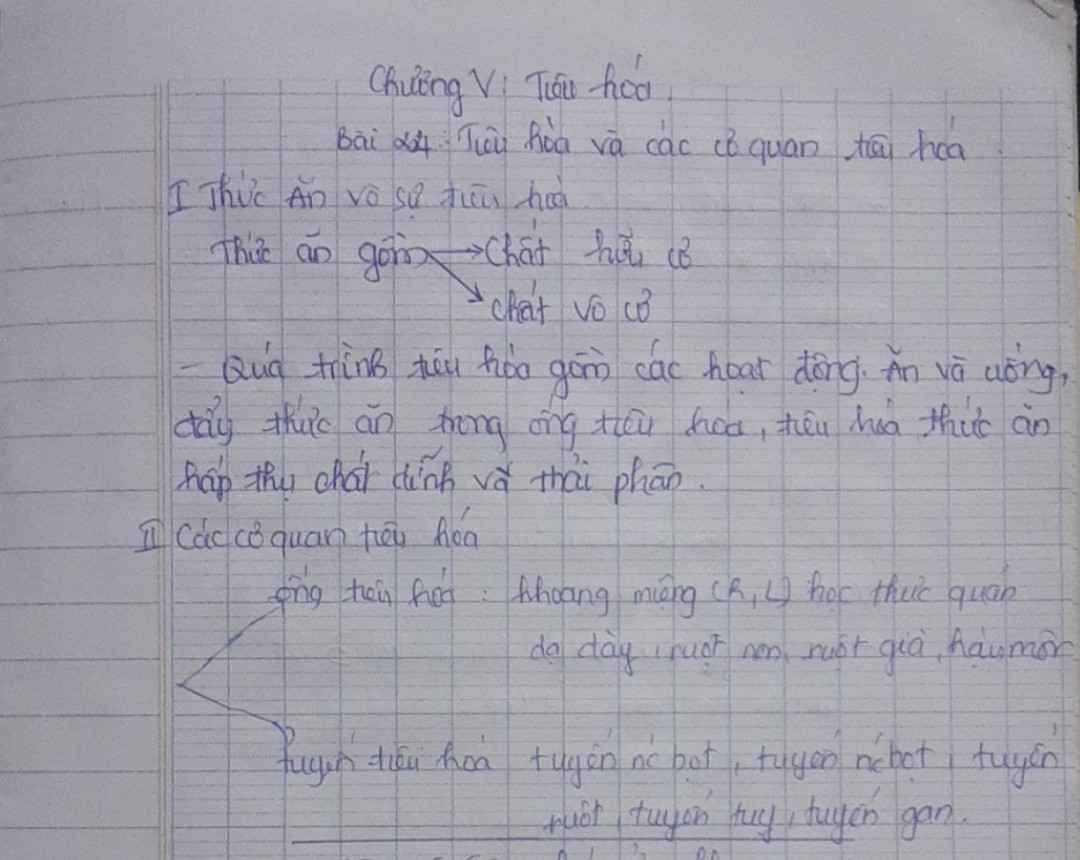 Chương V: Tiêu hóa
Bài 24: Tiêu hóa và các cơ quan tiêu hóa
I Thức Ăn và sự tiêu hóa
Thức ăn gồm → Chất hữu cơ
chất vô cơ
- Quá trình tiêu hóa gồm các hoạt động. Ăn và uống,
đẩy thức ăn trong ống tiêu hóa, tiêu hóa thức ăn
hấp thụ chất dinh và thải phân.
II Các cơ quan tiêu hóa
ống tiêu hóa : khoang miệng (R, L) học thực quản
dạ dày, ruột non, ruột già, hậu môn
tuyến tiêu hóa tuyến nc bọt, tuyến nc bọt, tuyến
ruột, tuyến tụy, tuyến gan.